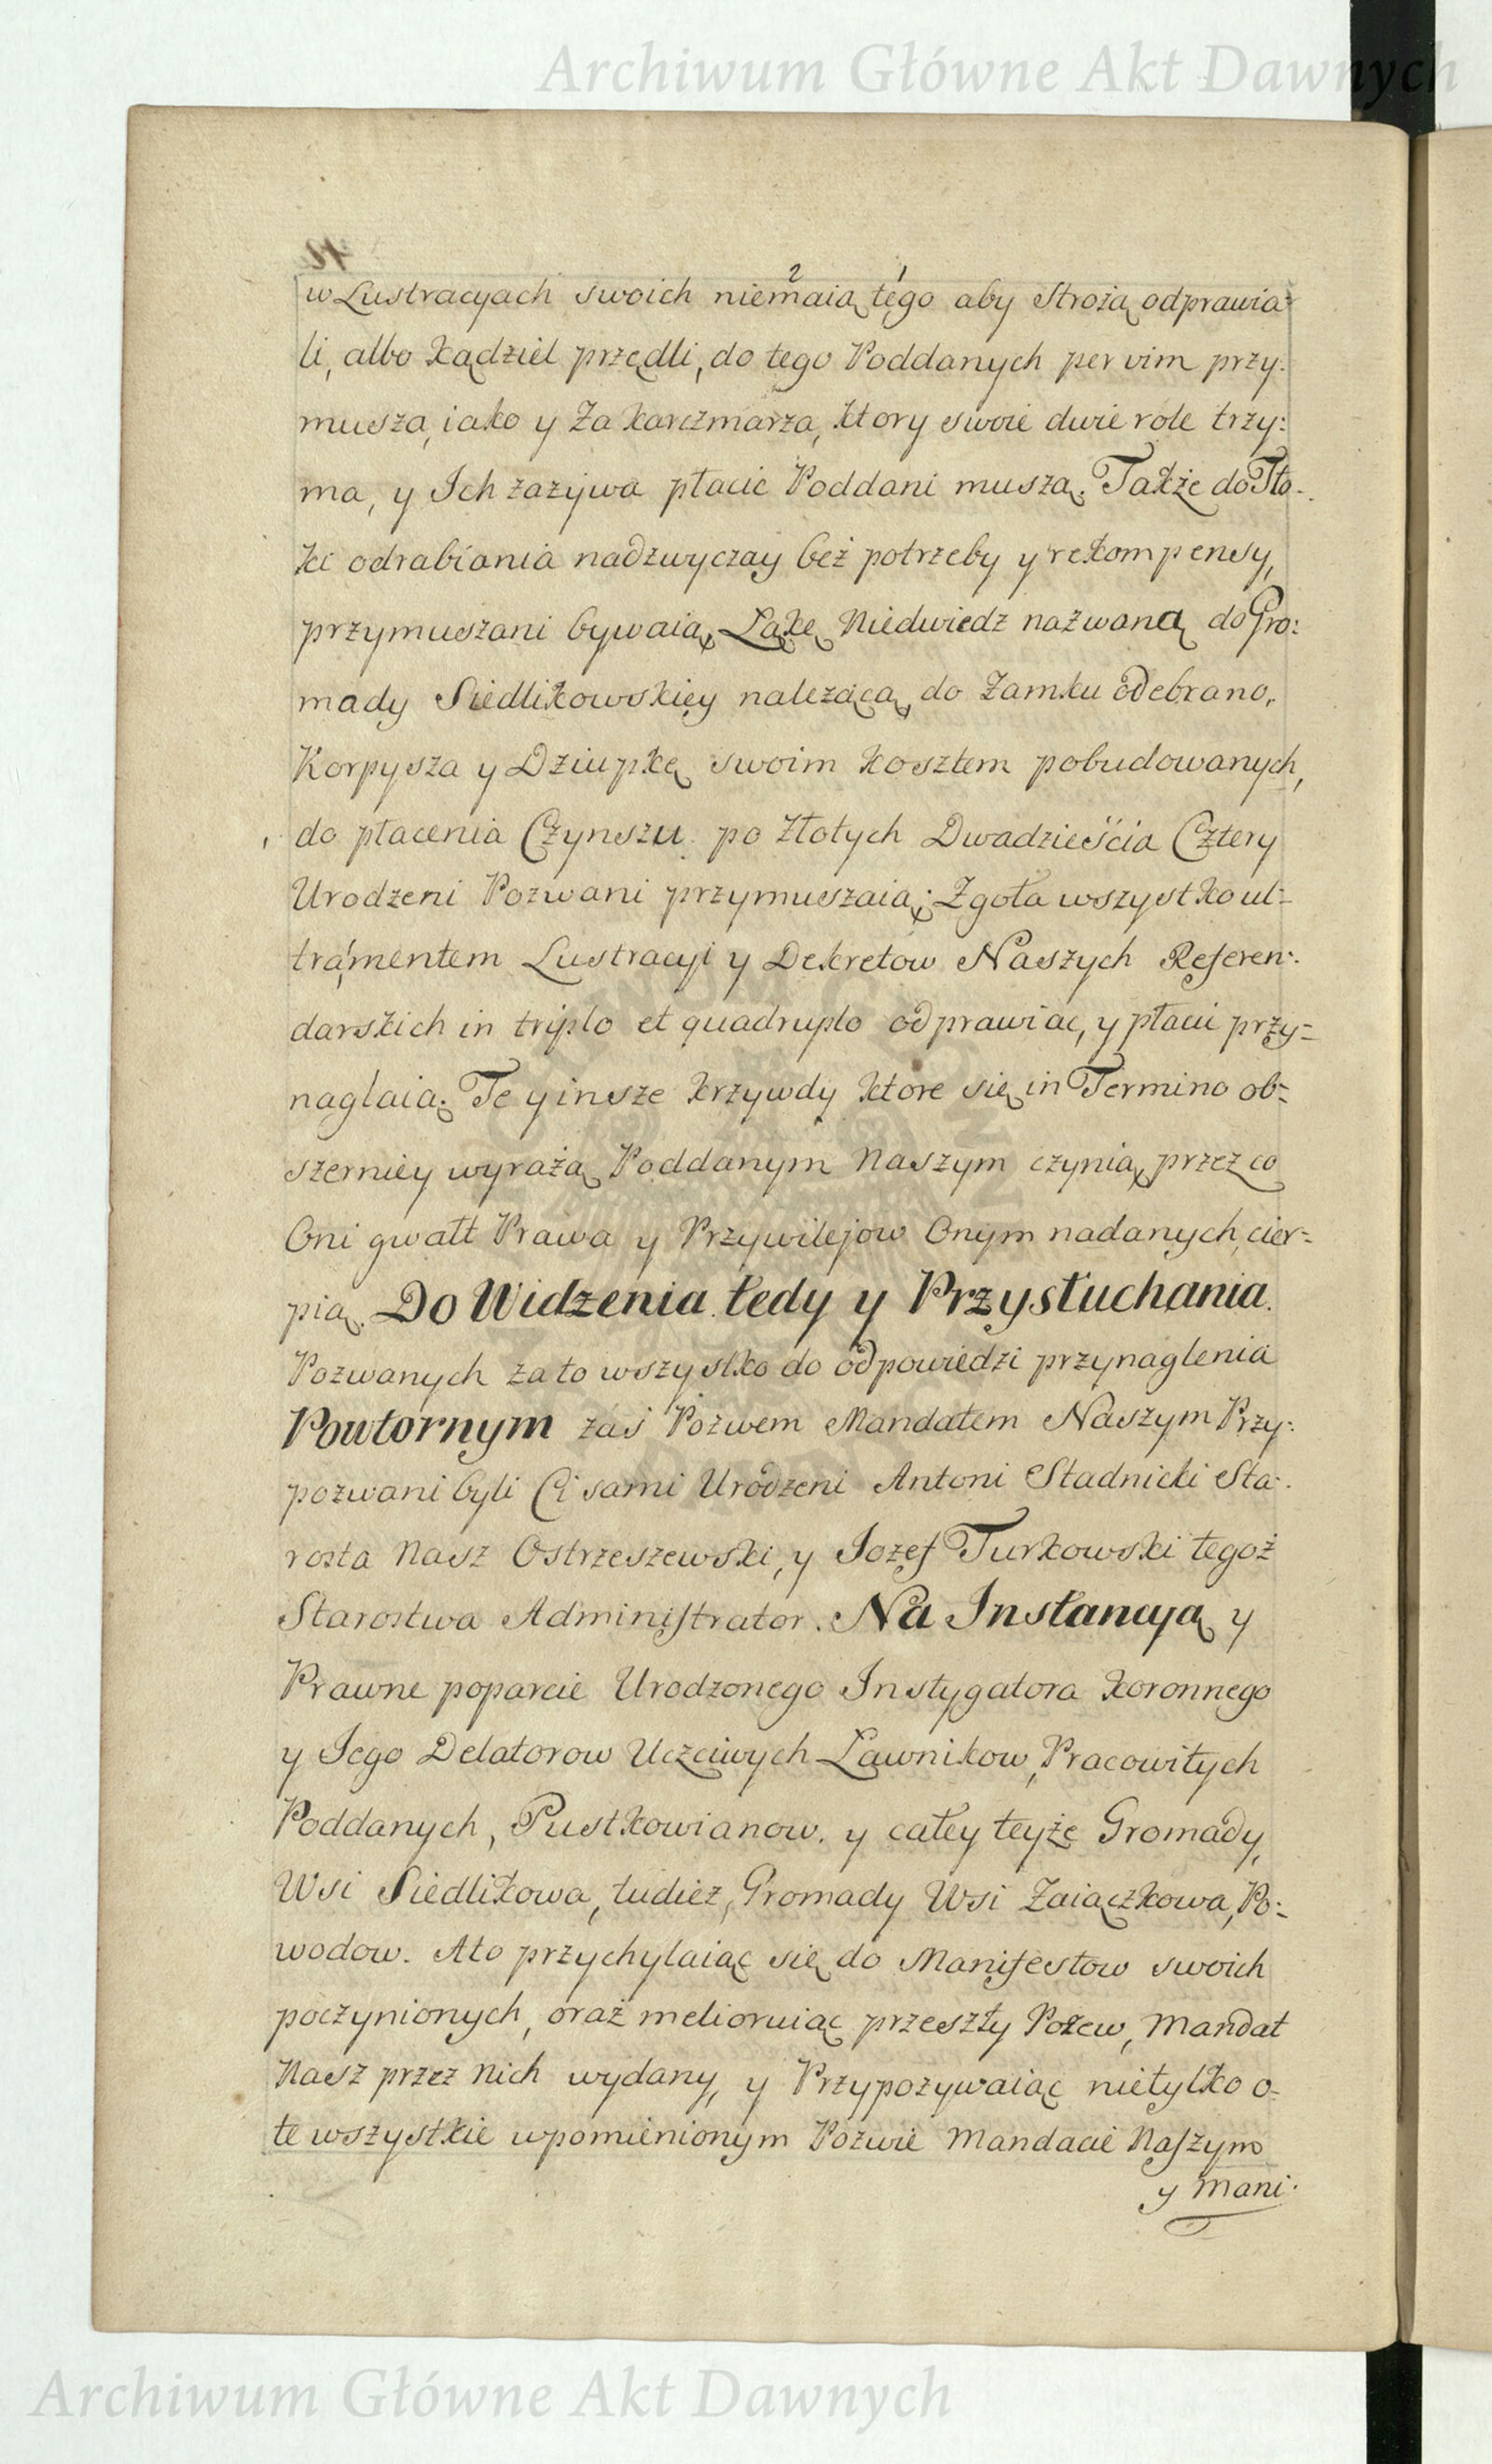 Archiwum Główne Akt Dawnych
w Lustracyach swoich niemaią tego aby Strożą odprawia-
2 1
li, albo kądziel przędli, do tego Poddanych per vim przy:
musza, iako y za karczmarza, ktory swoie dwie role trzy:
ma, y Ich zazywa płacić Poddani muszą. Także do Tło-
ki odrabiania nadzwyczay bez potrzeby y rekompensy,
przymuszani bywaią, Łąkę Niedwiedz nazwaną do Gro:
mady Siedlikowskiey nalezącą, do Zamku odebrano,
Korpysza y Dziupkę swoim kosztem pobudowanych,
do płacenia Czynszu po Złotych Dwadzieścia Cztery
Urodzeni Pozwani przymuszaią; Zgoła wszystko ul-
tramentem Lustracyi y Dekretow Naszych Referen:
darskich in triplo et quadruplo odprawiac, y płacić przy=
naglaią. Te y insze krzywdy ktore się in Termino ob=
szerniey wyrażą Poddanym Naszym czynią, przez co
Oni gwałt Prawa y Przywilejow Onym nadanych cier=
pią. Do Widzenia tedy y Przysłuchania
Pozwanych za to wszystko do odpowiedzi przynaglenia
Powtornym zaś Pozwem Mandatem Naszym Przy:
pozwani byli Ci sami Urodzeni Antoni Stadnicki Sta:
rosta Nasz Ostrzeszewski, y Iozef Turkowski tegoż
Starostwa Administrator. Na Instancyą y
Prawne poparcie Urodzonego Instygatora Koronnego
y Iego Delatorow Uczciwych Ławnikow, Pracowitych
Poddanych, Pustkowianow, y całey teyże Gromady,
Wsi Siedlikowa, tudież, Gromady Wsi Zaiączkowa, Po:
wodow. A to przychylaiąc się do Manifestow swoich
poczynionych, oraz melioruiąc przeszły Pozew, Mandat
Nasz przez Nich wydany, y Przypozywaiąc nietylko o-
te wszystkie wpomienionym Pozwie Mandacie Naszym
y Mani:
Archiwum Główne Akt Dawnych